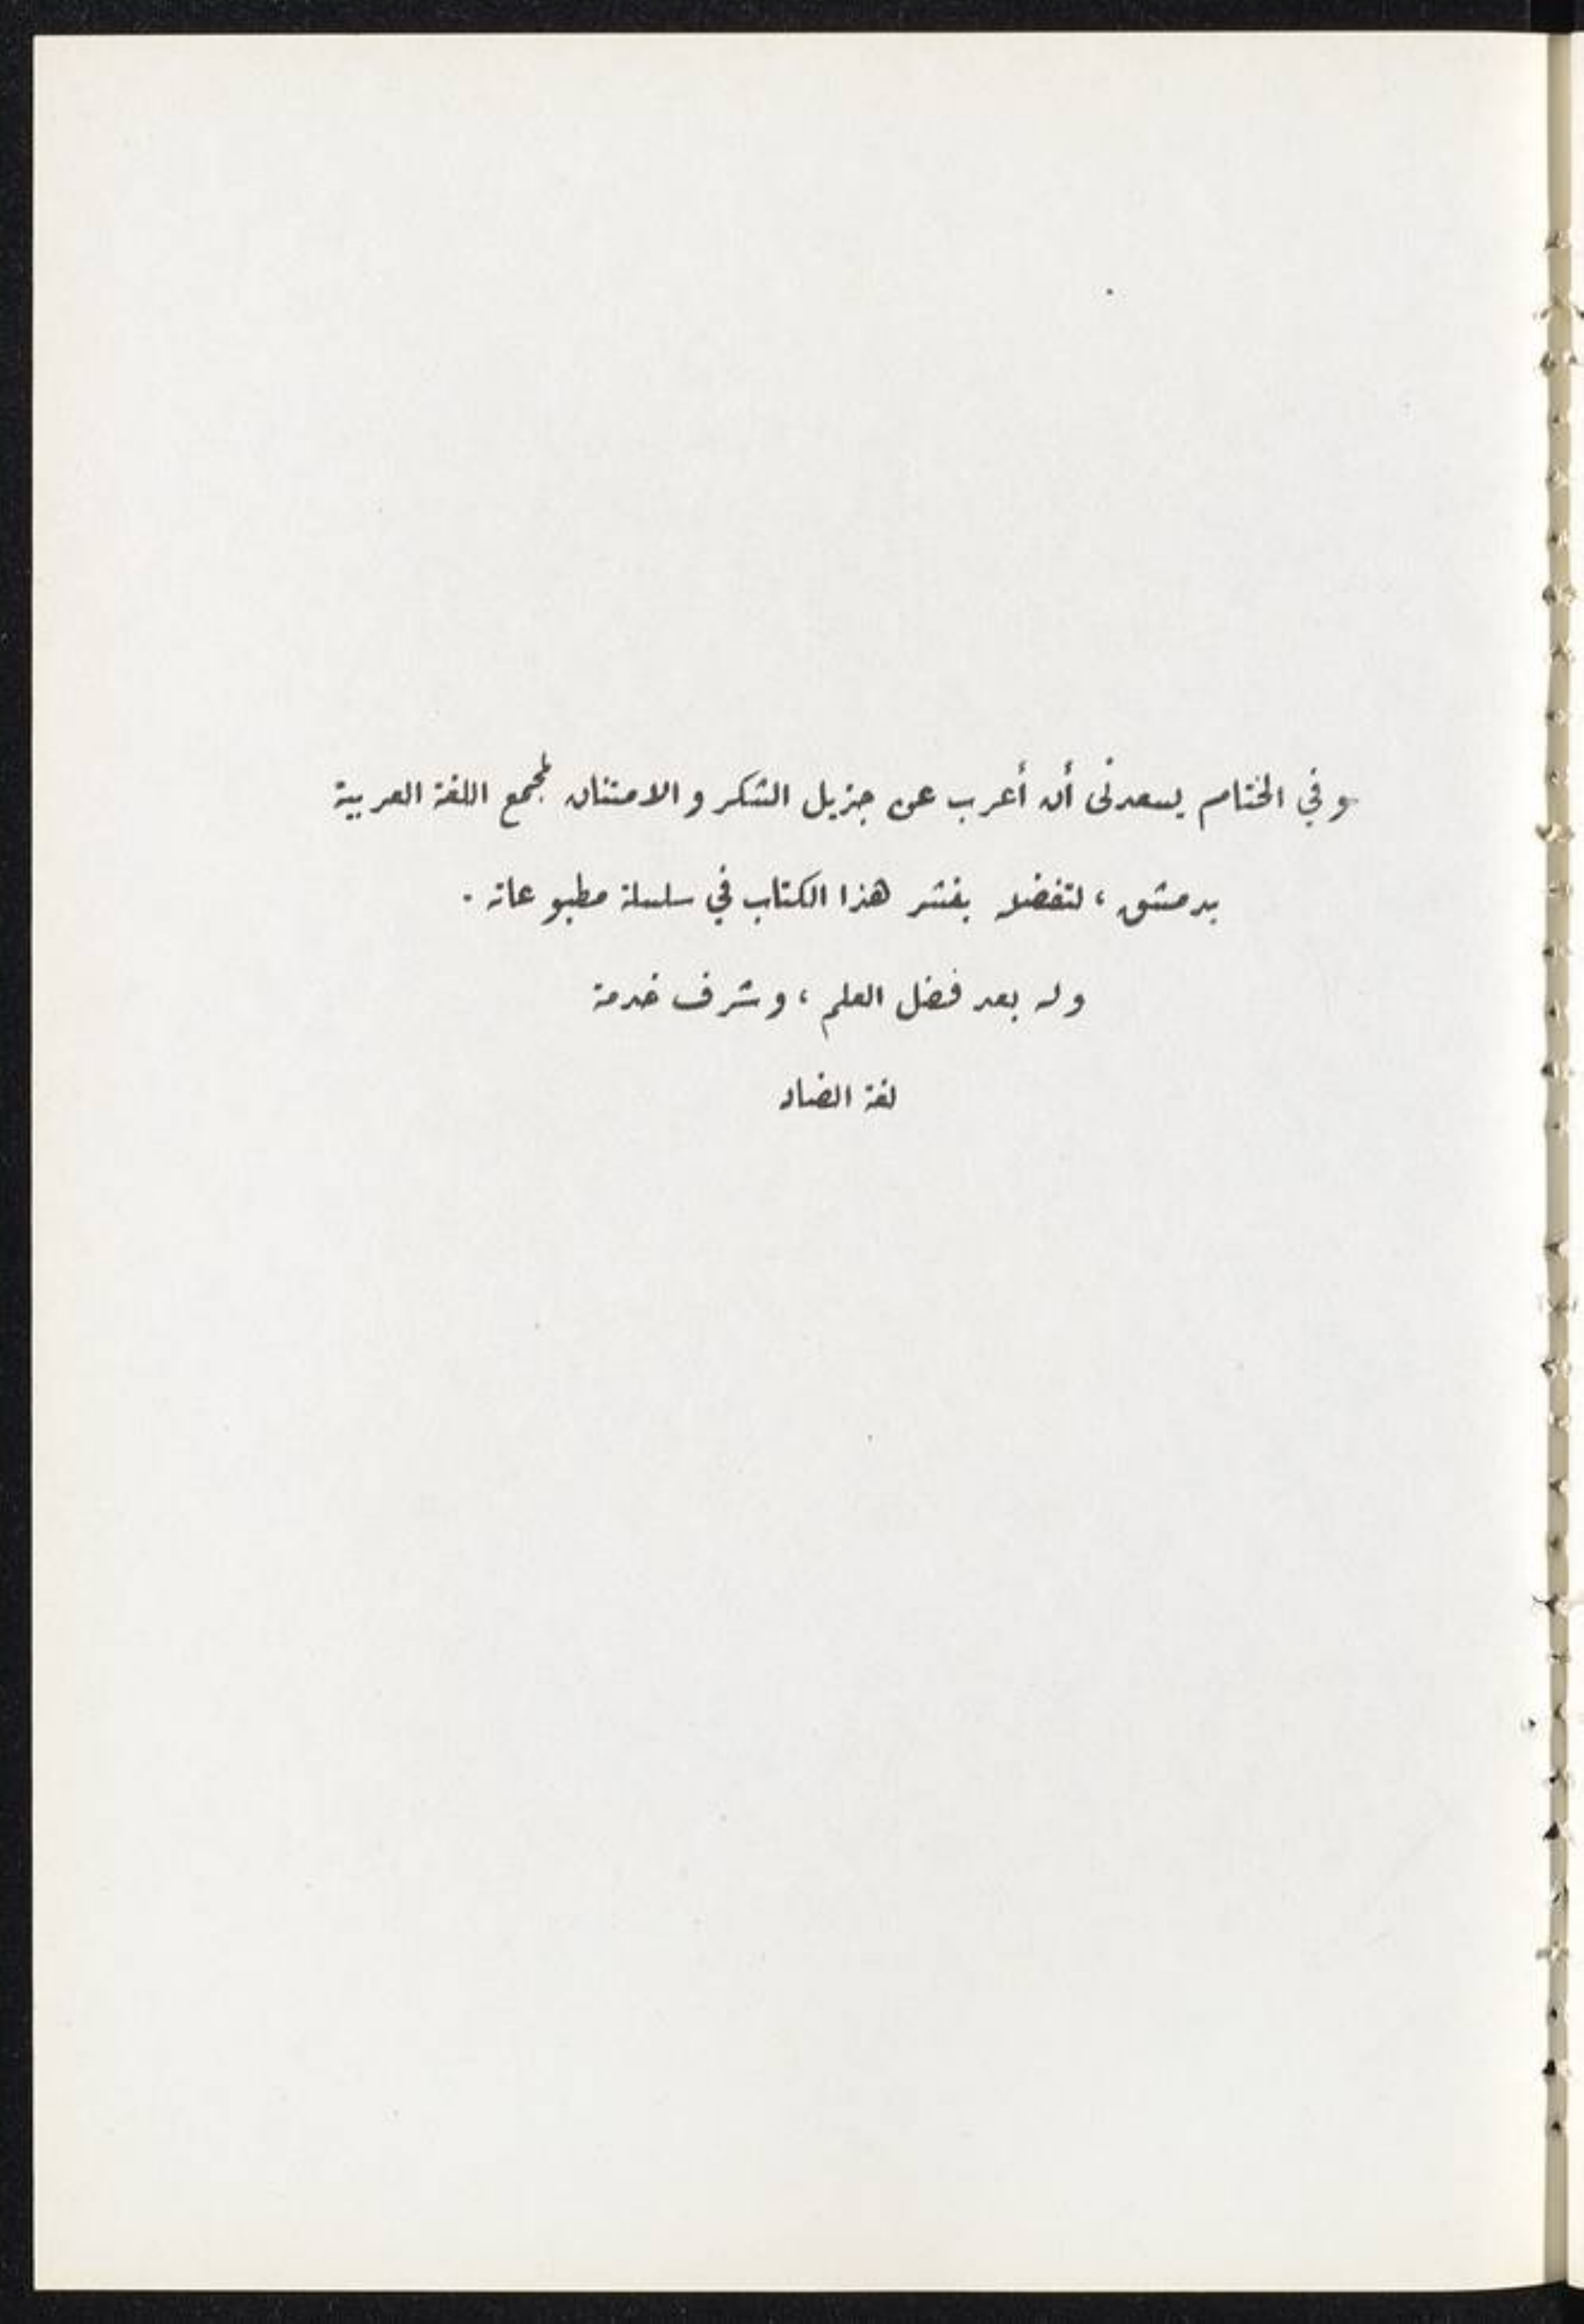 وفي الختام يسعدني أن أعرب عن جزيل الشكر والامتنان لمجمع اللغة العربية
بدمشق ، لتفضله بنشر هذا الكتاب في سلسلة مطبوعاته .
وله بعد فضل العلم ، وشرف خدمة
لغة الضاد